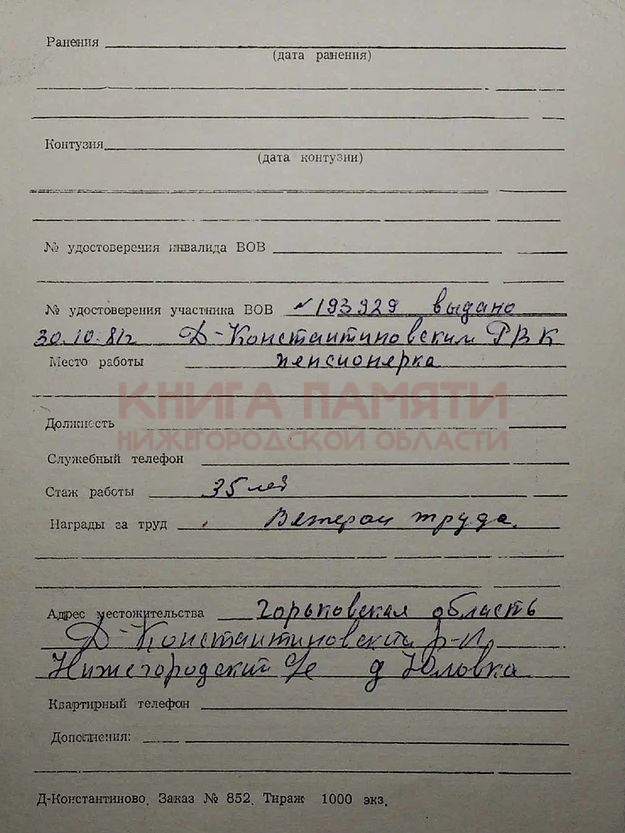 Ранения
(дата ранения)
Контузия
(дата контузии)
№ удостоверения инвалида ВОВ
№ удостоверения участника ВОВ № 193929 выдано
30.10.81г Д-Константиновским РВК
Место работы пенсионерка
КНИГА ПАМЯТИ
Должность
НИЖЕГОРОДСКОЙ ОБЛАСТИ
Служебный телефон
Стаж работы 35 лет
Награды за труд Ветеран труда.
Адрес местожительства Горьковская область
Д-Константиновский р-н,
Нижегородский с/с д Юловка
Квартирный телефон
Дополнения:
Д-Константиново. Заказ № 852. Тираж 1000 экз.